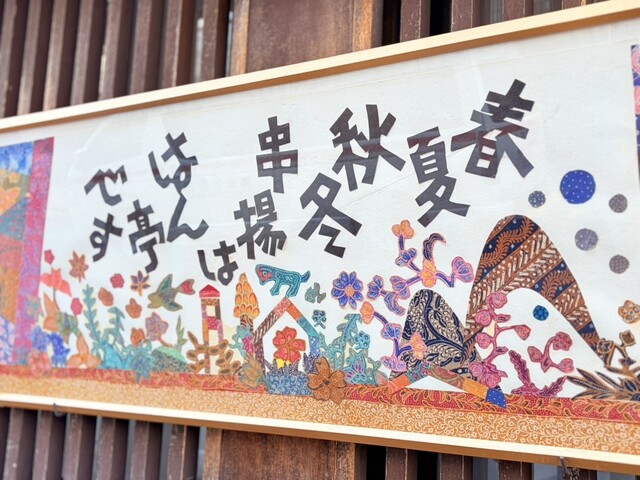 春夏秋冬 串揚は はん亭です